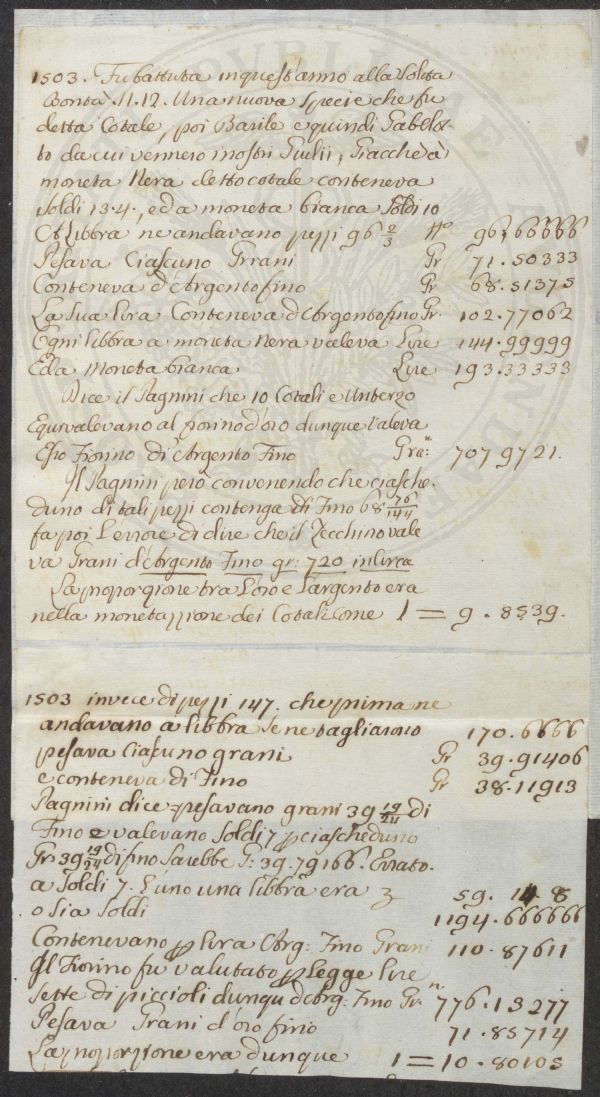 1503. Fu battuta in quest'anno alla solita
Bontà 11.12. Una nuova specie che fu
detta Cotale, poi Barile e quindi Gabelot-
to da cui vennero i nostri Giulii, Giacché à
moneta Nera detto cotale conteneva
soldi 13.4., ed a moneta bianca soldi 10
A libbra ne andavano pezzi 96 2/3 No 96,66666
Pesava Ciascuno Grani Gr 71.50333
Conteneva d'Argento fino Gr 68.51375
La sua lira Conteneva d'Argento fino Gr. 102.77062
Ogni libbra a moneta Nera valeva Lire 144.99999
Ed a Moneta bianca Lire 193.33333
Dice il Pagnini che 10 Cotali e Un terzo
Equivalevano al fiorino d'oro dunque valeva
Esso Fiorino di Argento Fino Gra: 707 9721.
Il Pagnini però convenendo che ciasche-
duno di tali pezzi contenga di Fino 68 76/144
fa poi l'errore di dire che il Zecchino vale
va Grani d'Argento Fino gr: 720 in circa
La proporzione tra L'oro e L'argento era
nella monetazzione dei Cotali Come 1 = 9.8539.
1503 invece di pezzi 147. che prima ne
andavano a libbra se ne tagliarono 170.6666
pesava Ciascuno grani Gr 39.91406
e conteneva di Fino Gr 38.11913
Pagnini dice pesavano grani 39 19/24 di
Fino e valevano Soldi 7 p ciascheduno
Gr: 39 19/24 di fino Sarebbe G: 39.79166. Errato.
a Soldi 7. L'uno una libbra era 59. 14 8
o sia Soldi 1194.666666
Contenevano p lira Arg: Fino Grani 110.87611
Il Fiorino fu valutato p Legge lire
sette di piccioli dunqu d'Arg: Fino Gr.n 776.13277
Pesava Grani d'oro fino 71.85714
La proporzione era dunque 1 = 10.80105